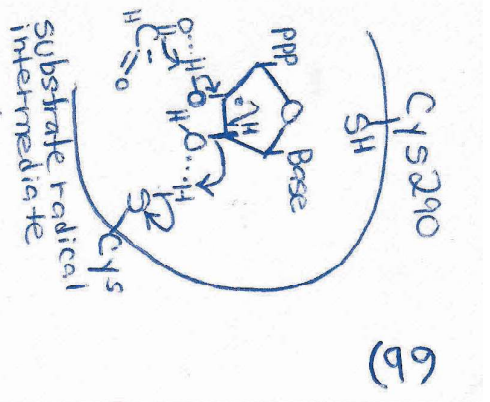 66)
Cys290
SH
PPP
O
Base
H
O...H
O
H
O
H
C
O
H
O...H
S
Cys
Substrate radical
intermediate